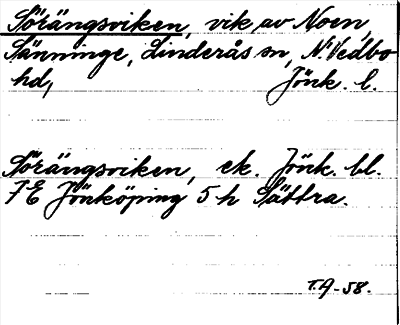 Sörängsviken, vik av Noen,
Sänninge, Linderås sn, N. Vedbo
hd, Jönk. l.
Sörängsviken, ek. Jönk. bl.
7E Jönköping 5 h Sättra.
T.A-58.